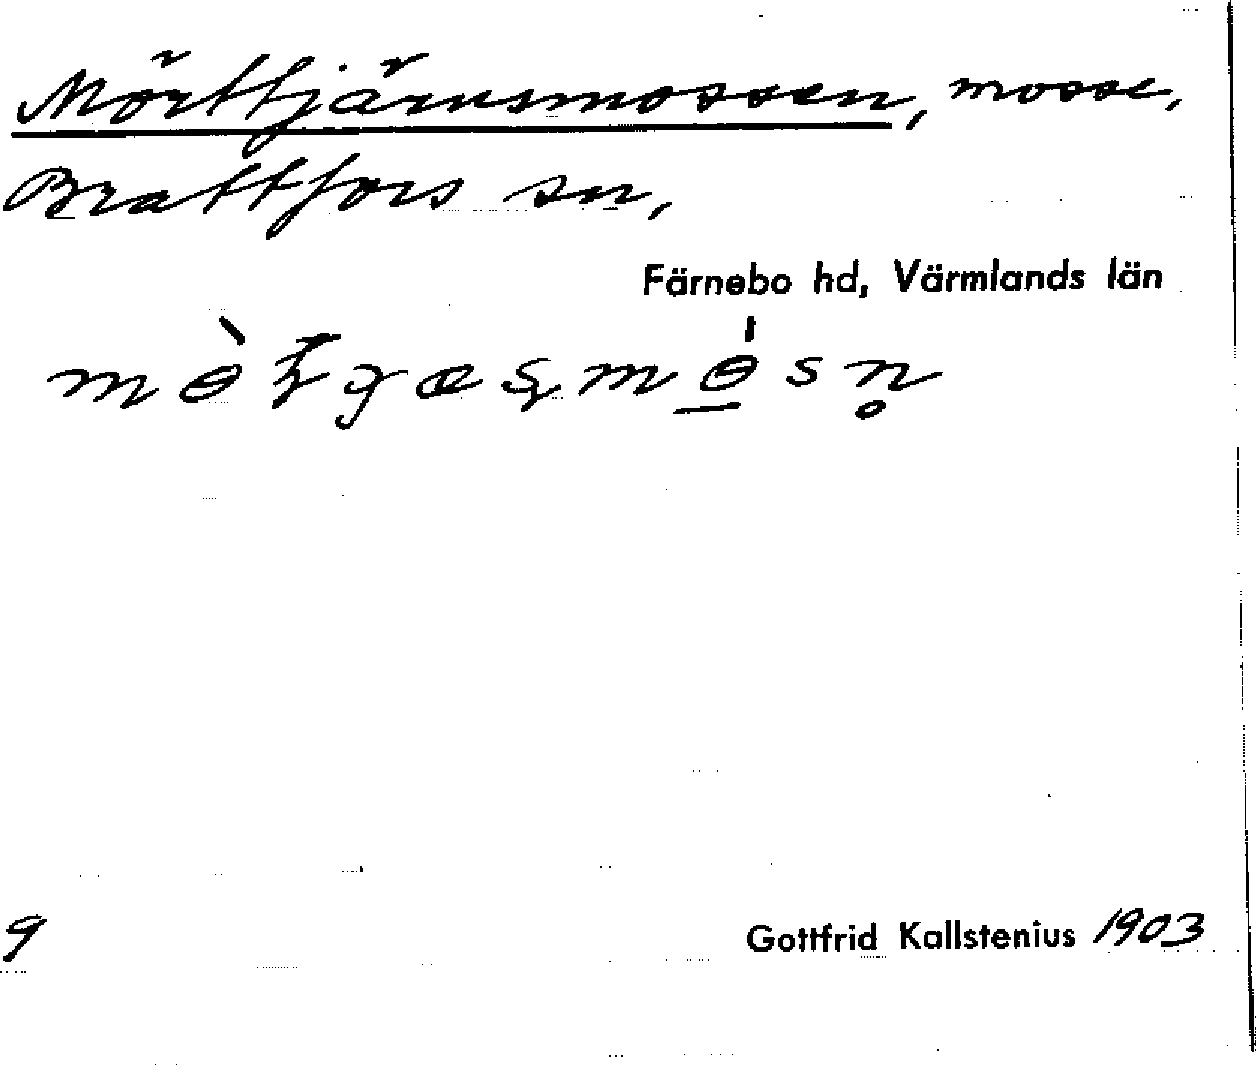 Mörttjärnsmossen, mosse,
Brattfors sn,
Färnebo hd, Värmlands län
9
Gottfrid Kallstenius 1903